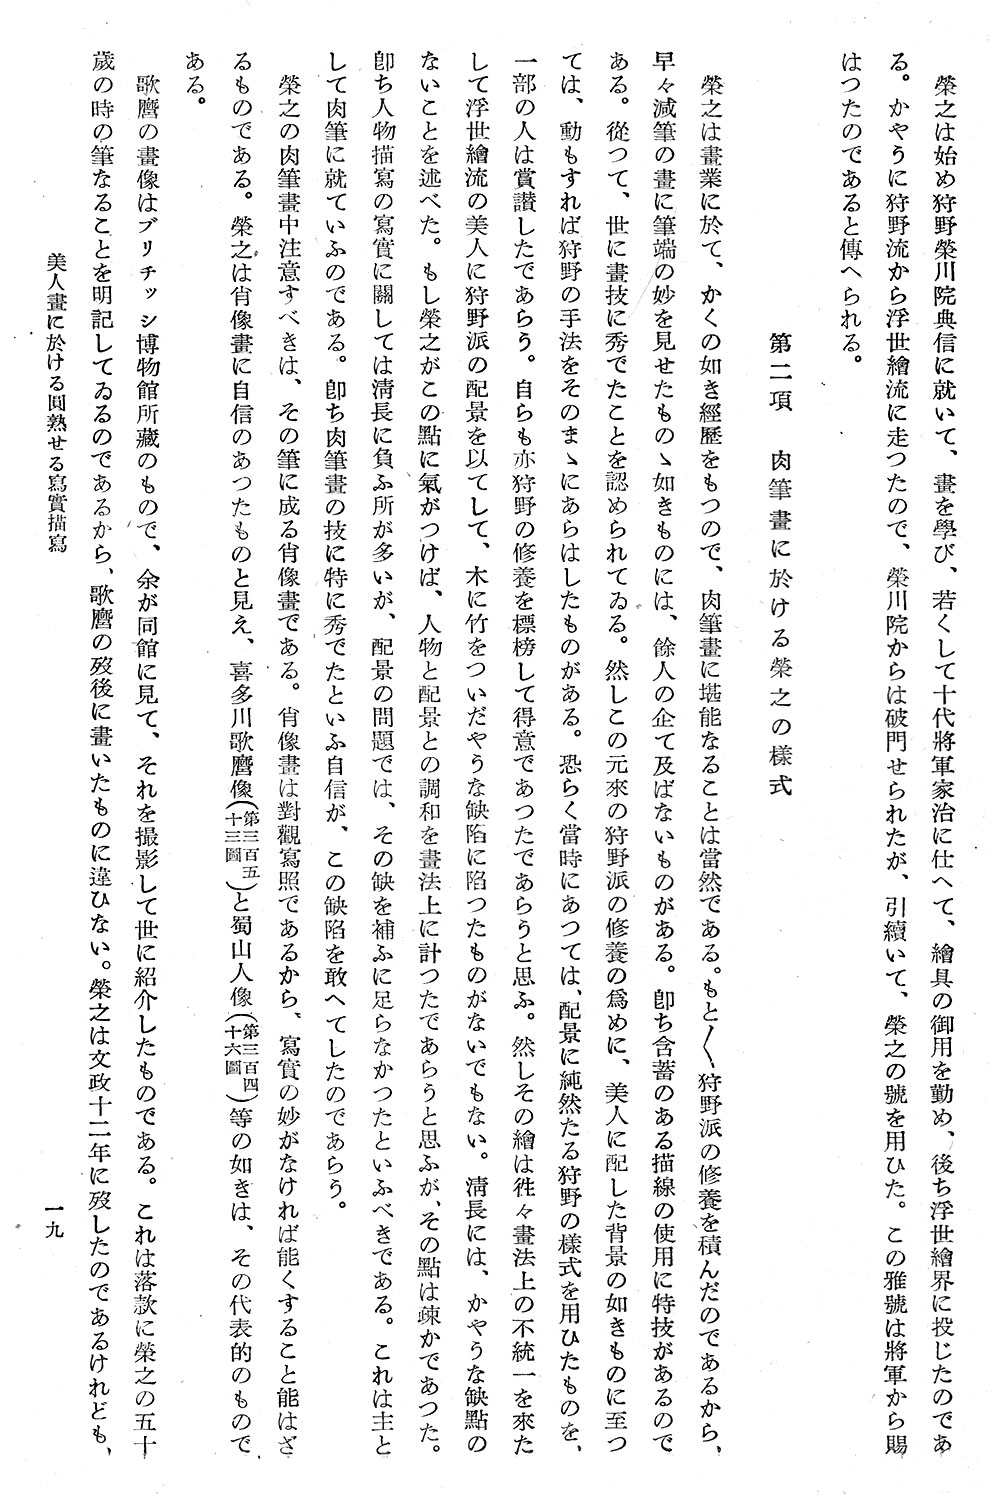 榮之は始め狩野榮川院典信に就いて、畫を學び、若くして十代將軍家治に仕へて、繪具の御用を勤め、後ち浮世繪界に投じたのであ
る。かやうに狩野流から浮世繪流に走つたので、榮川院からは破門せられたが、引續いて、榮之の號を用ひた。この雅號は將軍から賜
はつたのであると傳へられる。
第二項　肉筆畫に於ける榮之の樣式
榮之は畫業に於て、かくの如き經歷をもつので、肉筆畫に堪能なることは當然である。もと〱狩野派の修養を積んだのであるから、
早々減筆の畫に筆端の妙を見せたものゝ如きものには、餘人の企て及ばないものがある。卽ち含蓄のある描線の使用に特技があるので
ある。從つて、世に畫技に秀でたことを認められてゐる。然しこの元來の狩野派の修養の爲めに、美人に配した背景の如きものに至つ
ては、動もすれば狩野の手法をそのまゝにあらはしたものがある。恐らく當時にあつては、配景に純然たる狩野の樣式を用ひたものを、
一部の人は賞讃したであらう。自らも亦狩野の修養を標榜して得意であつたであらうと思ふ。然しその繪は徃々畫法上の不統一を來た
して浮世繪流の美人に狩野派の配景を以てして、木に竹をついだやうな缺陷に陷つたものがないでもない。淸長には、かやうな缺點の
ないことを述べた。もし榮之がこの點に氣がつけば、人物と配景との調和を畫法上に計つたであらうと思ふが、その點は疎かであつた。
卽ち人物描寫の寫實に關しては淸長に負ふ所が多いが、配景の問題では、その缺を補ふに足らなかつたといふべきである。これは主と
して肉筆に就ていふのである。卽ち肉筆畫の技に特に秀でたといふ自信が、この缺陷を敢へてしたのであらう。
榮之の肉筆畫中注意すべきは、その筆に成る肖像畫である。肖像畫は對觀寫照であるから、寫實の妙がなければ能くすること能はざ
るものである。榮之は肖像畫に自信のあつたものと見え、喜多川歌麿像（第三百五十三圖）と蜀山人像（第三百四十六圖）等の如きは、その代表的のもので
ある。
歌麿の畫像はブリチッシ博物館所藏のもので、余が同館に見て、それを撮影して世に紹介したものである。これは落款に榮之の五十
歲の時の筆なることを明記してゐるのであるから、歌麿の歿後に畫いたものに違ひない。榮之は文政十二年に歿したのであるけれども、
美人畫に於ける圓熟せる寫實描寫
一九